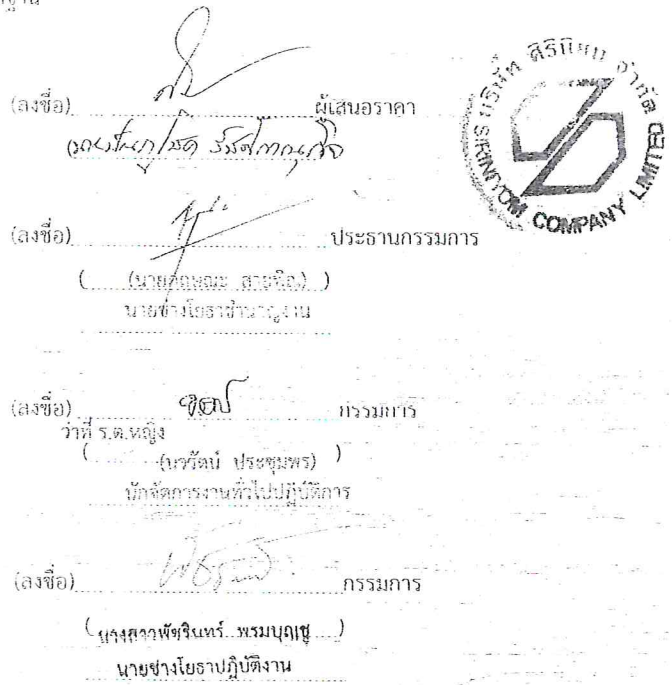 ฐาน
(ลงชื่อ) ผู้เสนอราคา
บริษัท ศิรินิยม จำกัด
COMPANY LIMITED
(ลงชื่อ) ประธานกรรมการ
( (นายกฤษณะ สายพิณ) )
นายช่างโยธาชำนาญงาน
(ลงชื่อ) กรรมการ
ว่าที่ ร.ต.หญิง
( (นวรัตน์ ประชุมพร) )
นักจัดการงานทั่วไปปฏิบัติการ
(ลงชื่อ) กรรมการ
(นางสาวพัชรินทร์ พรมบุญชู )
นายช่างโยธาปฏิบัติงาน